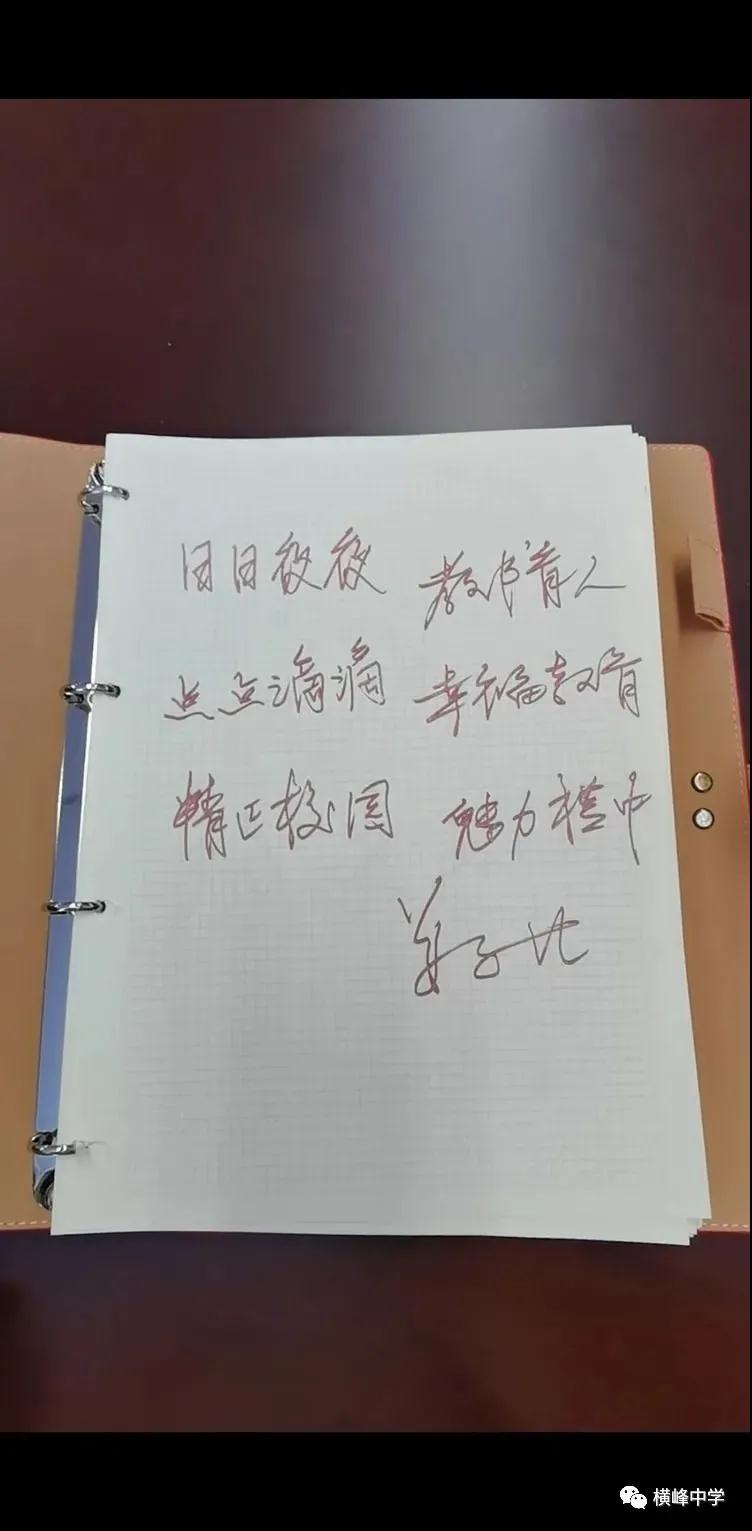 日日夜夜 教书育人
点点滴滴 幸福教育
校园 魅力横中
横峰中学